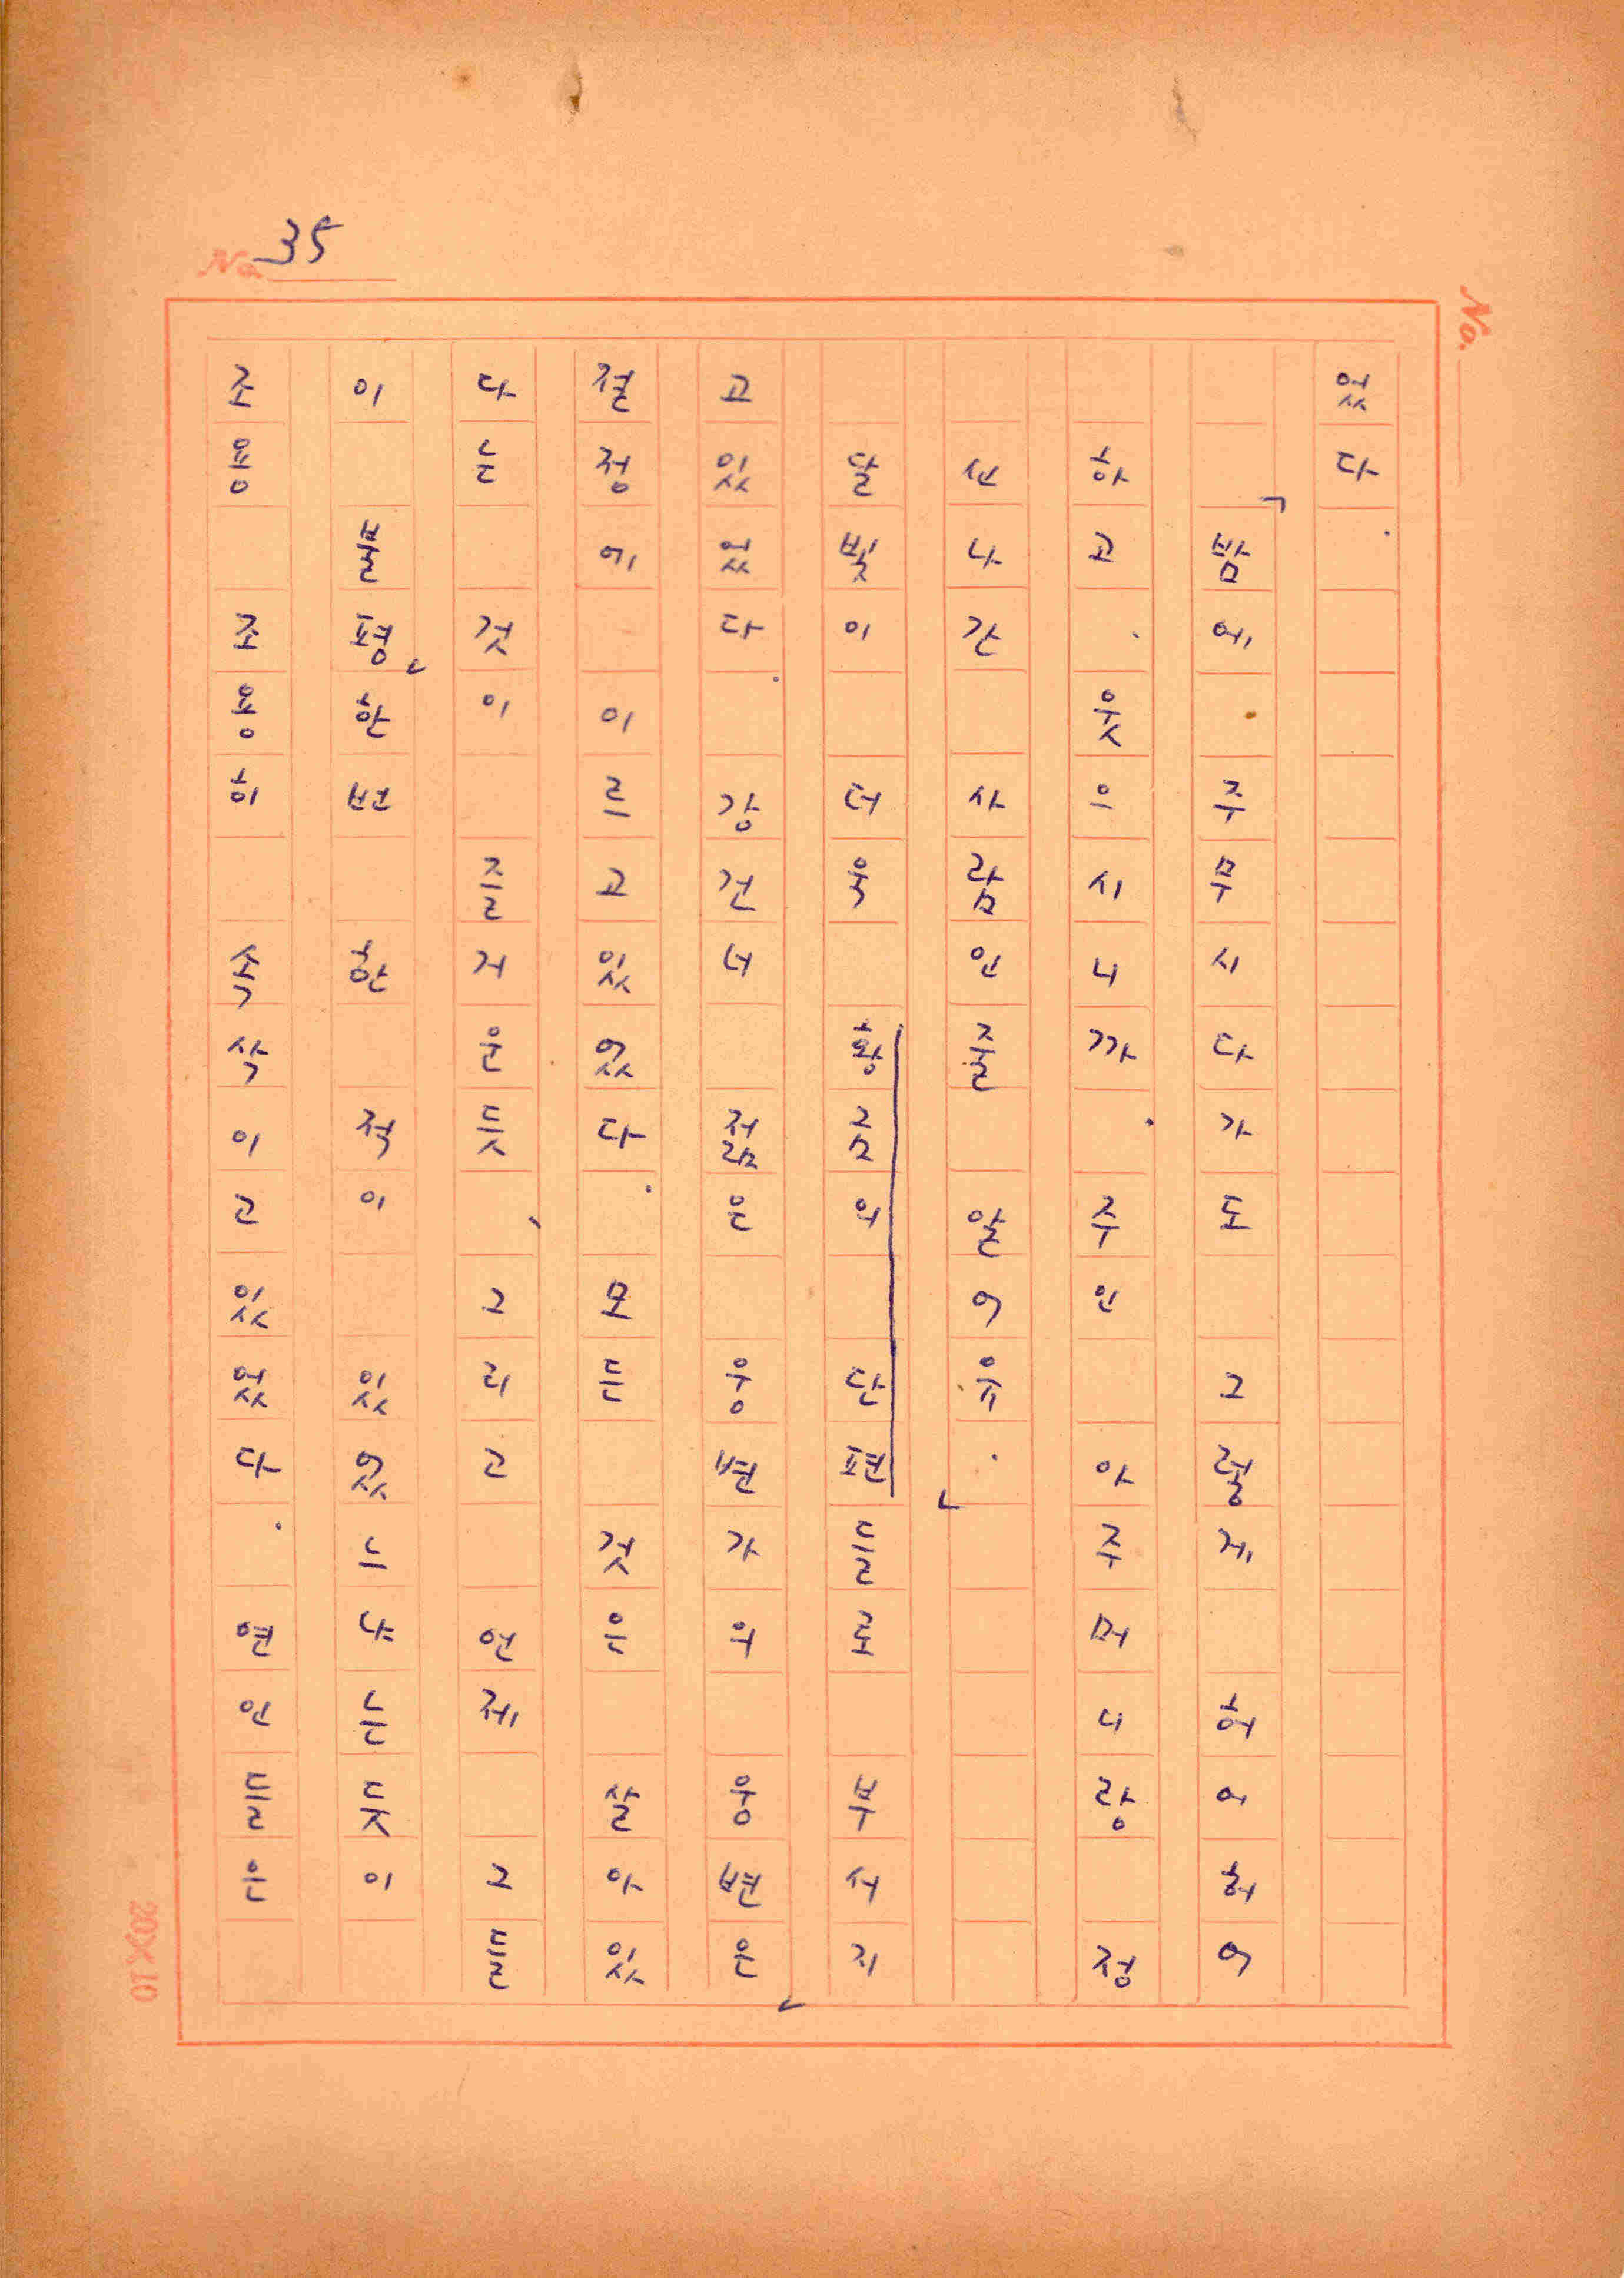 No. 35
No.
었다.
「밤에 주무시다가도 그렇게 허어허어
하고. 웃으시니까. 주인 아주머니랑 정
신나간 사람인 줄 알어유.」
달빛이 더욱 황금의 단편들로 부서지
고 있었다. 강건너 젊은 웅변가의 웅변은
절정에 이르고 있었다. 모든 것은 살아있
다는 것이 즐거운듯, 그리고 언제 그들
이 불평 한번 한 적이 있었느냐는듯이
조용 조용히 속삭이고 있었다. 연인들은
20X10